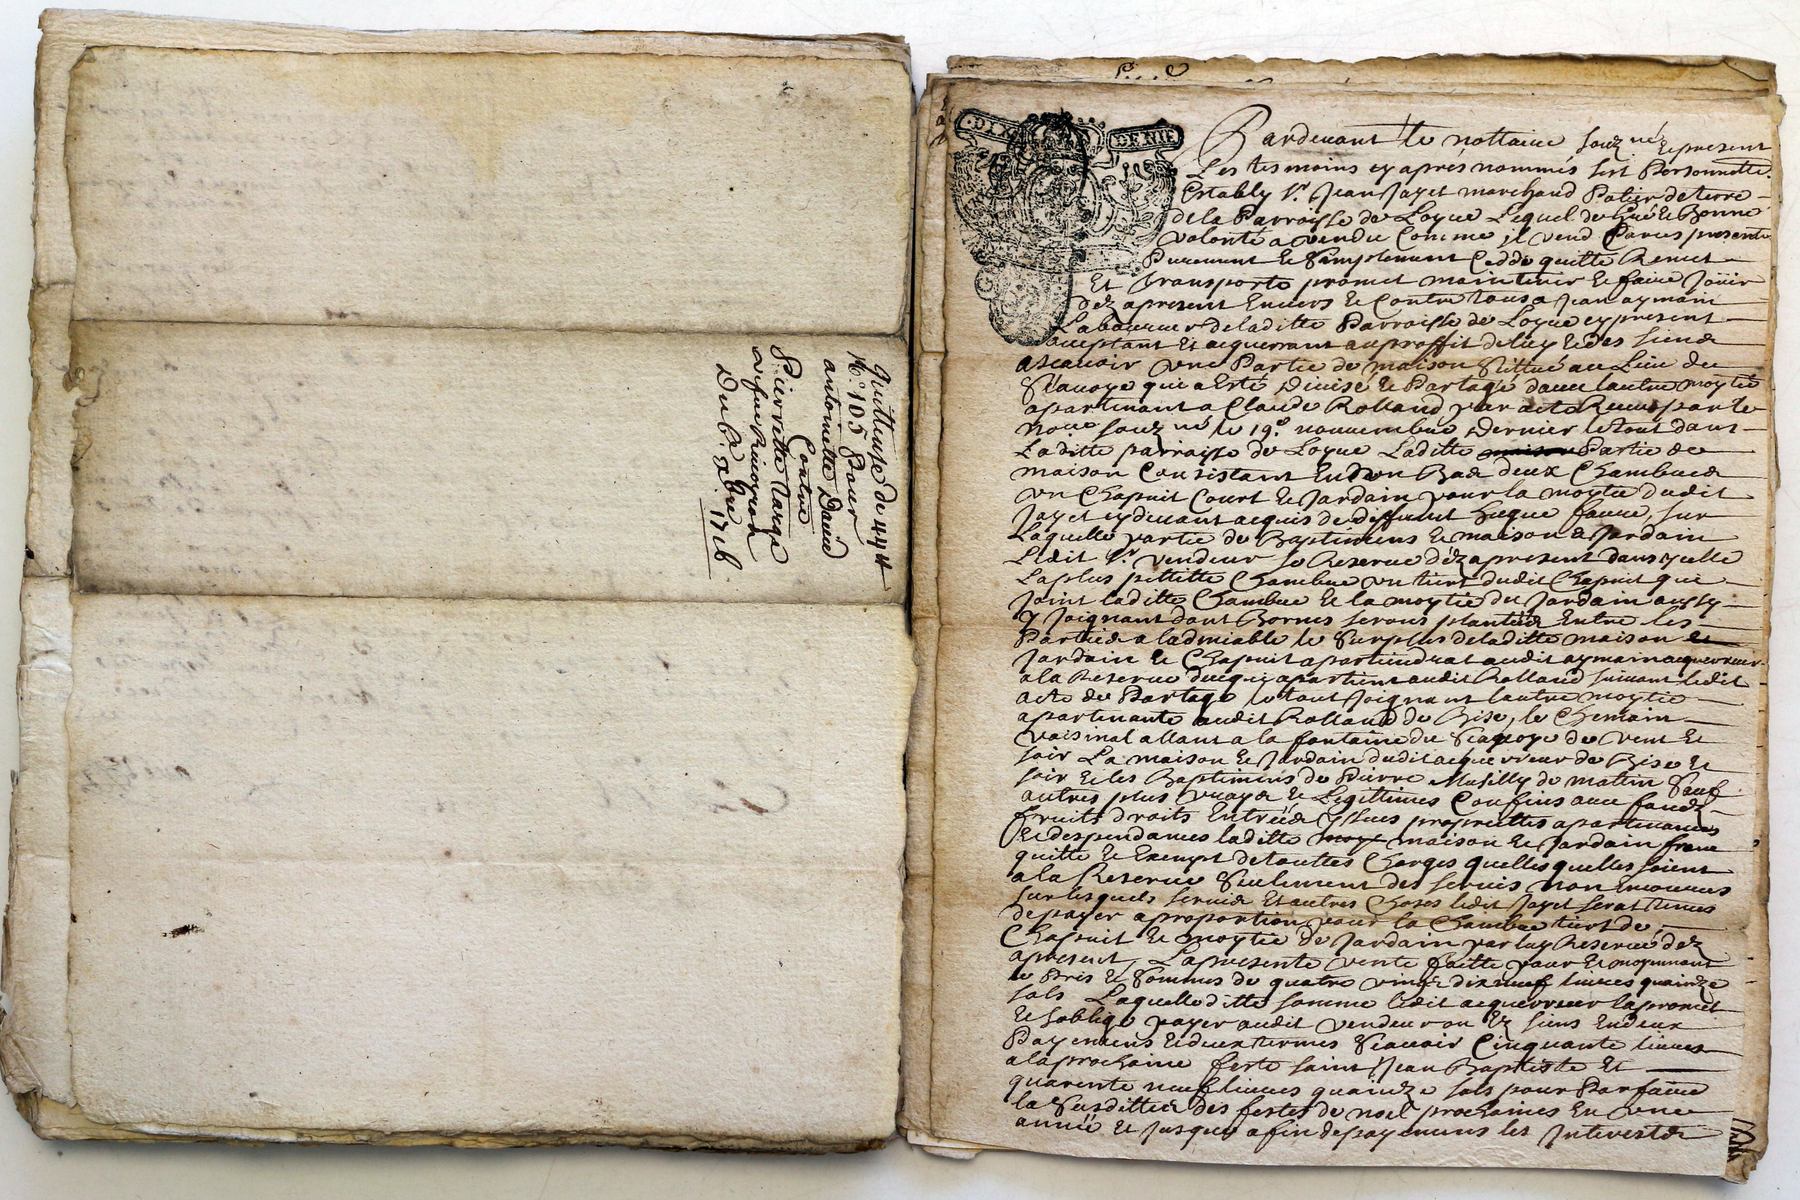 Quittense de 44tt
N.º 105 pour
antoinette David
Contre
Pierrette Large
Du 6. xbre 1716.
DIX DENIE
Pardevant le nottaire souz né, & present
Les tesmoins cy aprés nommés sest Personnelle.
Estably sr. Jean Jayet marchand Potier de terre
de la Parroisse de Loyue Lequel de gré & Bonne
volonté a vendu Comme jl vend Par ces presente
Purement & Simplement Cedde quitte Remet
Et transporte promet maintenir & faire Joüir
déz apresent Envers & Contre tous a Jean aymain
Laboureur de laditte Parroisse de Loyue cy present
acceptant Et acquerrant au proffit de luy & des siens
ascavoir une Partie de maison Sittué au Lieu du
que a Esté Divisé & Partagé davec lautre moytié
apartenant a Claude Rolland par acte Receu par le
nore souz né le 19e. novembre Dernier le tout dans
Laditte parroisse de Loyue Laditte maison Partie de
maison Consistant En Bas deux Chambres
un Chapuit Court & Jardain pour la moytié dudit
Jayet cydevant acquis de deffunt faure, sur
Laquelle partie de Baptimens & maison & Jardain
Ledit sr. vendeur se Reserve déz apresent dans jcelle
La plus pettitte Chambre un tiers dudit Chapuit qui
Joint laditte Chambre & la moytié du Jardain aussy
y Joignant dont Bornes serons plantées Entre les
Parties a ladmiable le Surplus de laditte maison &
Jardain & Chapuit apartiendrat audit aymain acquerreur
a la Reserve de ce qui apartient audit Rolland suivant ledit
acte de Partage le tout Joignant lautre moytié
apartenante audit Rolland de Bise, le Chemain
vaisinal allant a la fontaine du de vent Et
soir La maison & Jardain dudit acquerreur de Bise &
soir Et les Baptimens de Pierre Musilly de mattin Sauf
autres plus vrayes & Legittimes Confins avec fondz
fruits droits Entrées yssues propriettés apartenances
& despendances laditte moy maison & Jardain franc
quitte & Exempt de touttes Charges quelles quelles soient
a la Reserve Seulement des servis non Encourus
sur lesquels servis Et autres Choses ledit Jayet serat tenus
de payer a proportion pour la Chambre tiers de
Chapuit & moytié de Jardain par luy Reservé déz
apresent, La presente vente faitte pour Et moyennant
le Pris & Sommes de quatre vingt dix neuf livres quainze
sols Laquelle ditte somme ledit acquerreur la promet
& soblige payer audit vendeur ou Ez siens En deux
Payemens & deux termes Scavoir Cinquante livres
a la prochaine feste saint Jean Baptiste Et
quarente neuf livres quainze sols pour Parfaire
la Susditte des festes de noel prochaines En une
année Et Jusques a fin de payemens les Interests